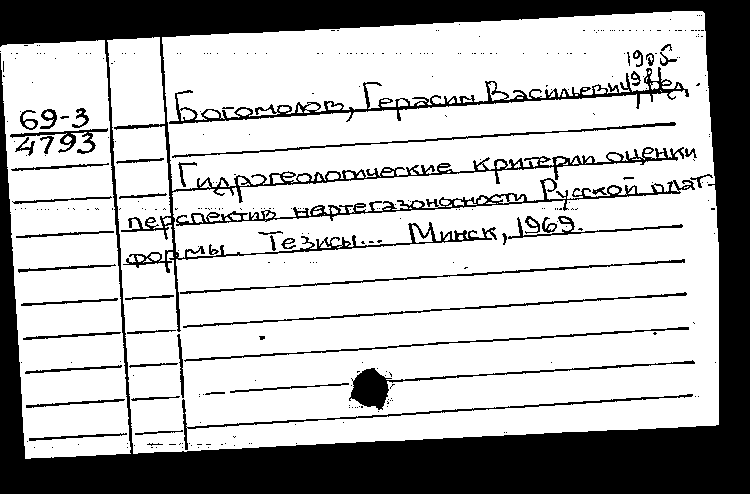 1905
1981
69-3
4793
Богомолов, Герасим Васильевич, ред.
Гидрогеологические критерии оценки
перспектив нефтегазоносности Русской плат-
формы. Тезисы... Минск, 1969.